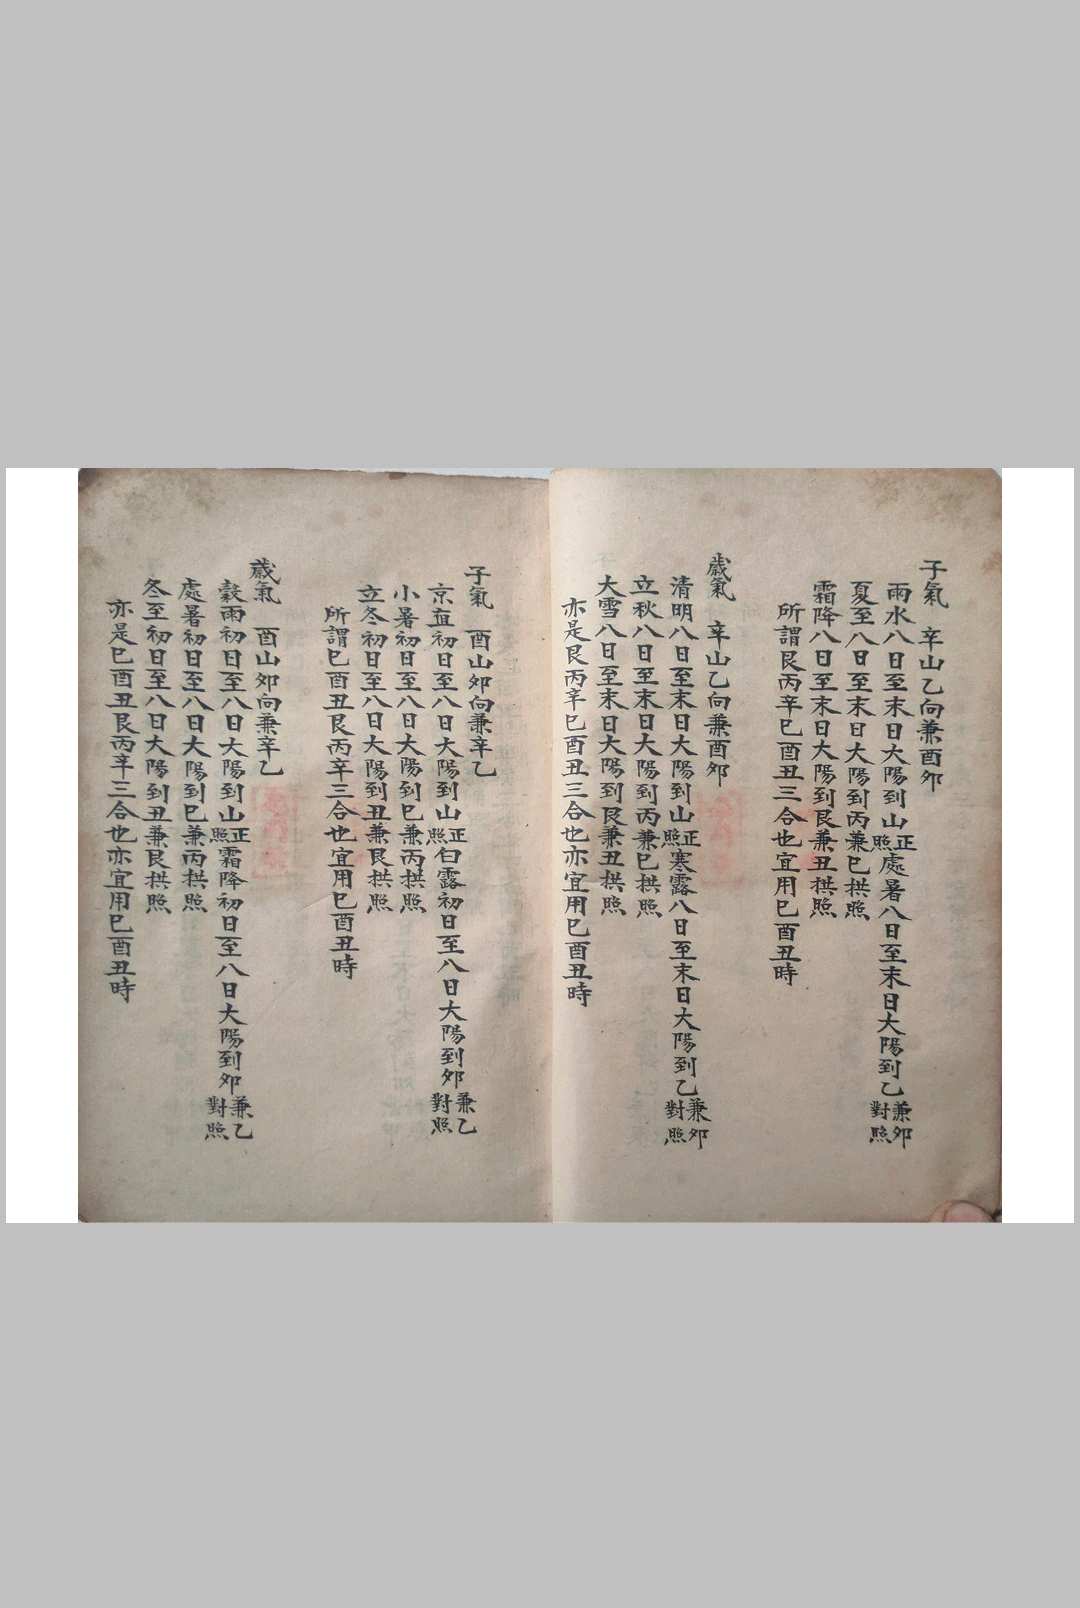 子氣　辛山乙向兼酉夘
雨水八日至末日大陽到山正照處暑八日至末日大陽到乙兼夘對照
夏至八日至末日大陽到丙兼巳拱照
霜降八日至末日大陽到艮兼丑拱照
所謂艮丙辛巳酉丑三合也宜用巳酉丑時
歲氣　辛山乙向兼酉夘
清明八日至末日大陽到山正照寒露八日至末日大陽到乙兼夘對照
立秋八日至末日大陽到丙兼巳拱照
大雪八日至末日大陽到艮兼丑拱照
亦是艮丙辛巳酉丑三合也亦宜用巳酉丑時
子氣　酉山夘向兼辛乙
京直初日至八日大陽到山正照白露初日至八日大陽到夘兼乙對照
小暑初日至八日大陽到巳兼丙拱照
立冬初日至八日大陽到丑兼艮拱照
所謂巳酉丑艮丙辛三合也宜用巳酉丑時
歲氣　酉山夘向兼辛乙
穀雨初日至八日大陽到山正照霜降初日至八日大陽到夘兼乙對照
處暑初日至八日大陽到巳兼丙拱照
冬至初日至八日大陽到丑兼艮拱照
亦是巳酉丑艮丙辛三合也亦宜用巳酉丑時